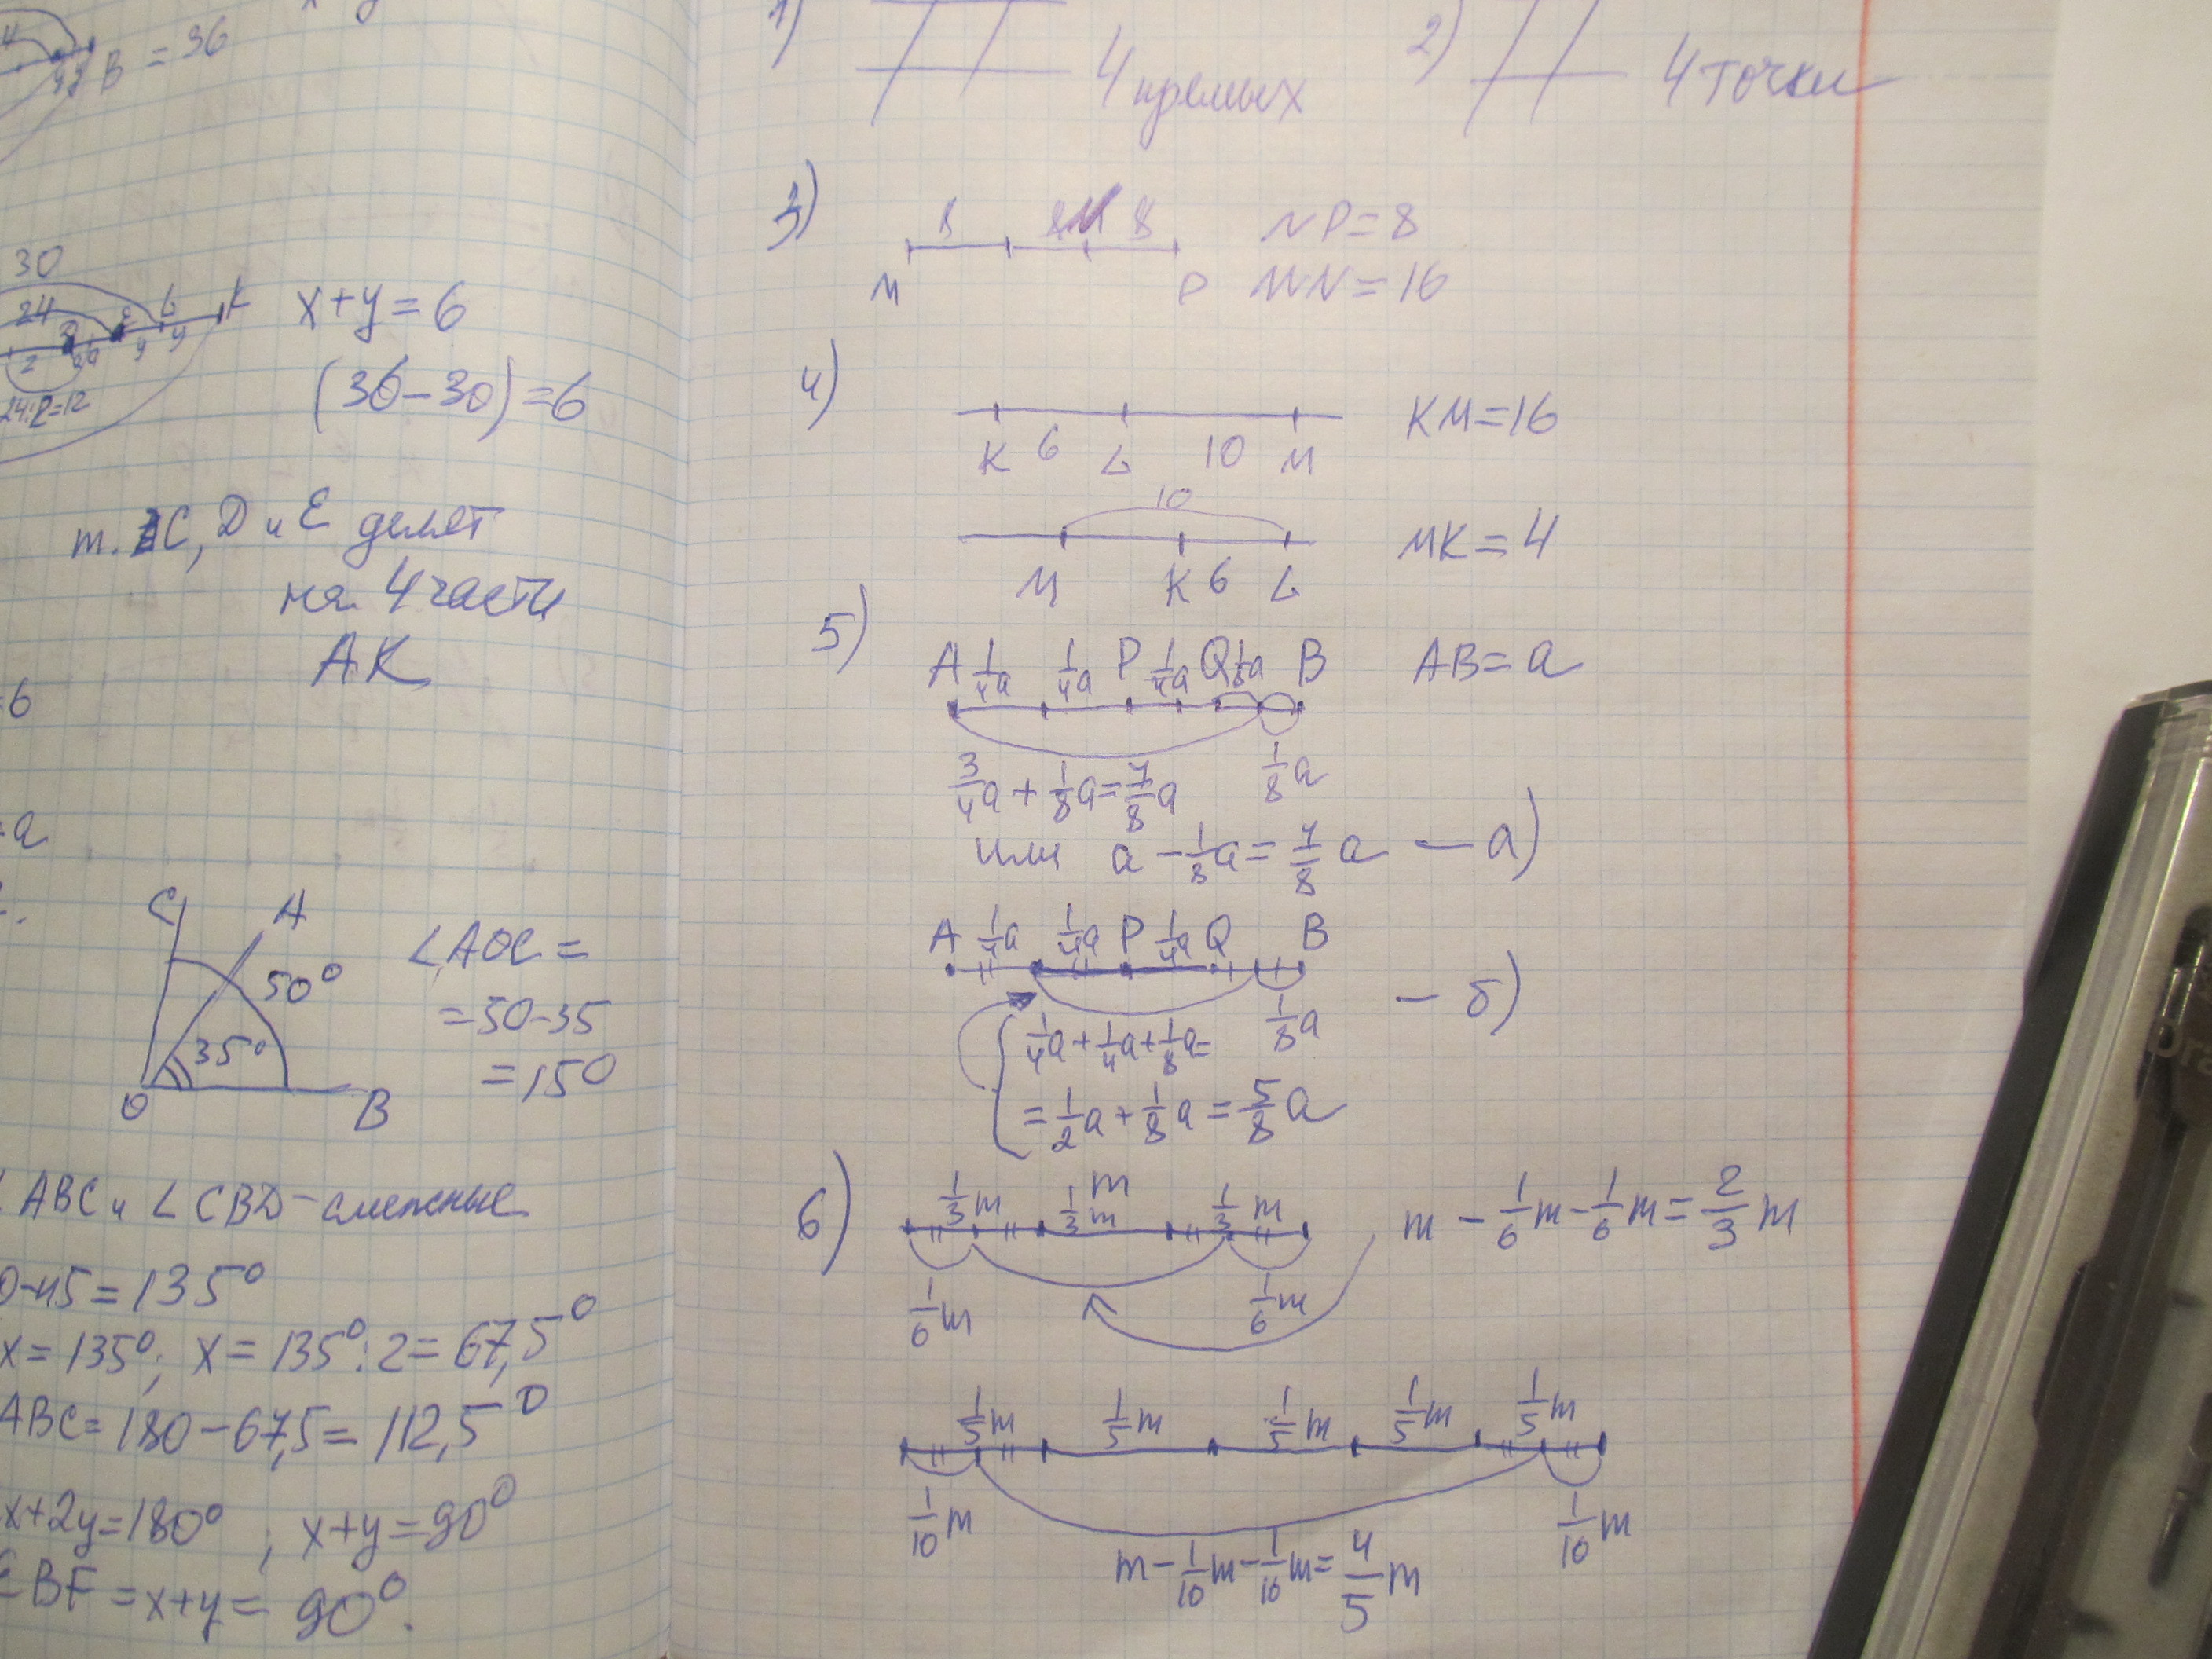 B = 36
30
24
L K
x+y=6
E
2 y y
24:2=12
(36-30)=6
т. C, D и E делят
на 4 части
AK
=6
a
C A
50°
35°
O B
∠AOC =
=50-35
=150
ABC и ∠CBD - смежные
0-45=135°
x=135°; x=135°:2=67,5°
ABC=180-67,5=112,5°
x+2y=180°; x+y=90°
EBF=x+y=90°.
1) 4 прямых 2) 4 точки
3) 8 8 NP=8
M P MN=16
4) KM=16
K 6 L 10 M
10
MK=4
M K 6 L
5) A 1/4a 1/4a P 1/4a Q 1/8a B AB=a
3/4a+1/8a=7/8a 1/8a
или a-1/8a=7/8a - а)
A 1/4a 1/4a P 1/4a Q B
1/8a - б)
1/4a+1/4a+1/8a=
=1/2a+1/8a=5/8a
6) m
1/3m 1/3m 1/3m m-1/6m-1/6m=2/3m
1/6m 1/6m
1/5m 1/5m 1/5m 1/5m 1/5m
1/10m 1/10m
m-1/10m-1/10m=4/5m